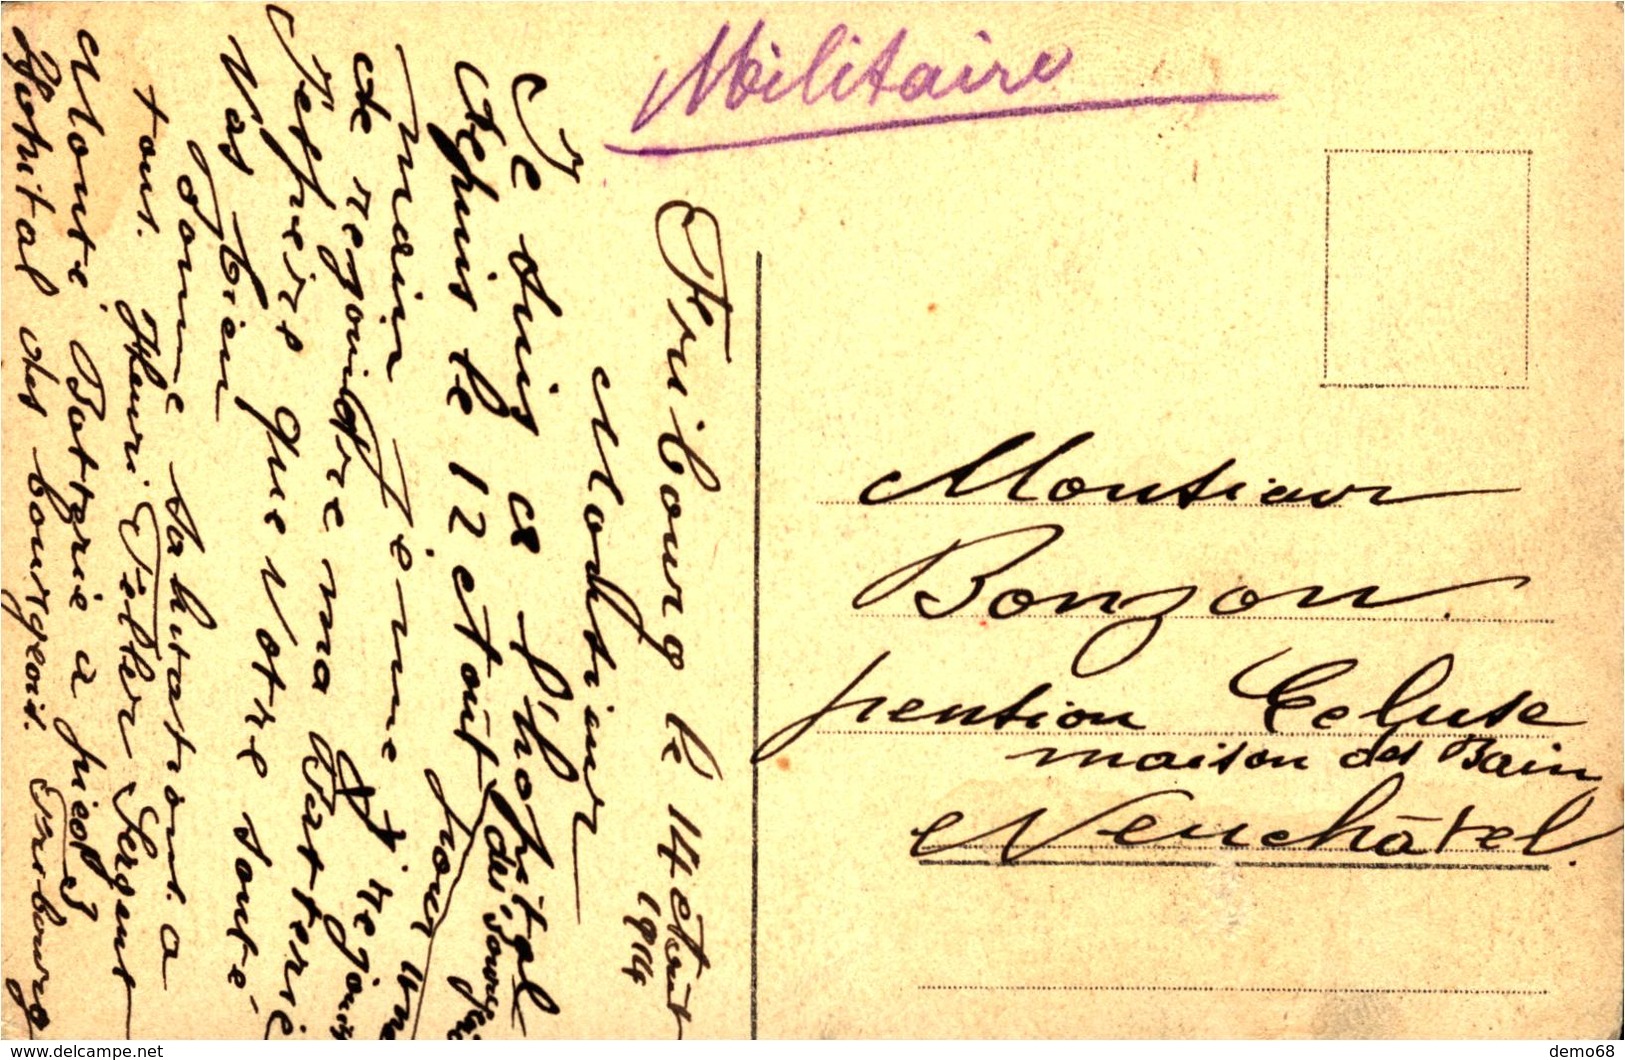 Militaire
Fribourg le 14 août
1914
Monsieur
Je suis a l'hopital
des Bourgeois
depuis le 12 août pour une
main
de rejoindre ma Batterie
J'espère que votre santé
vas bien
Bonne salutations a
tous. Henri Sergent
Monté. Batterie à pied
Hopital des bourgeois. Fribourg
Monsieur
Bonzon
pention Ecluse
maison des Bain
Neuchâtel.
www.delcampe.net
demo68